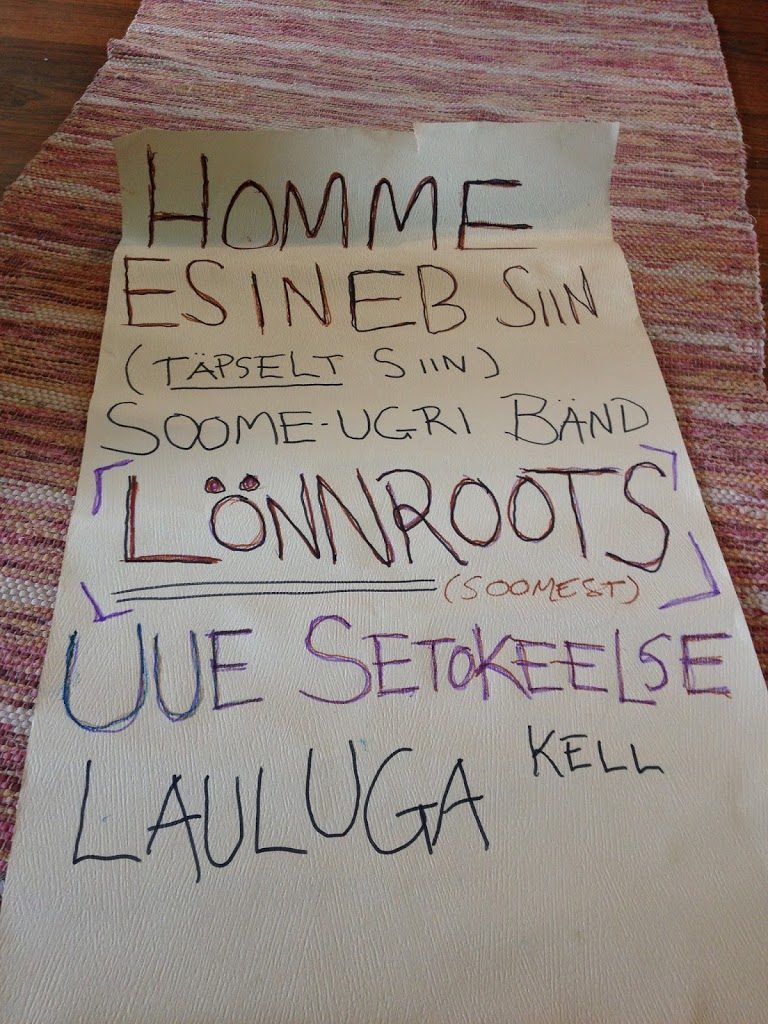 HOMME
ESINEB SIIN
(TÄPSELT SIIN)
SOOME-UGRI BÄND
LÖNNROOTS
(SOOMEST)
UUE SETOKEELSE
LAULUGA KELL